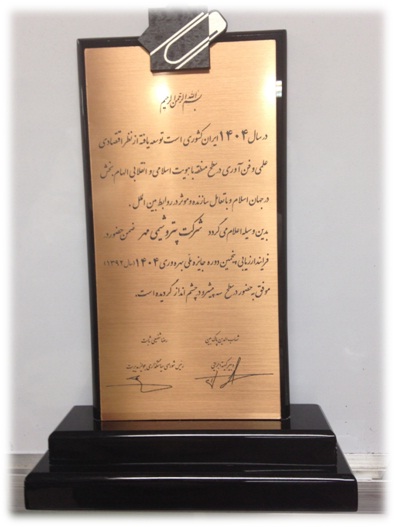 بسم الله الرحمن الرحیم
در سال ۱۴۰۴ ایران کشوری است توسعه یافته از نظر اقتصادی
علمی و فن آوری در سطح منطقه با هویت اسلامی و انقلابی الهام بخش
در جهان اسلام و با تعامل سازنده و موثر در روابط بین الملل .
بدین وسیله اعلام می گردد شرکت پتروشیمی مهر ضمن حضور در
فرایند ارزیابی پنجمین دوره جایزه ملی بهره وری ۱۴۰۴ (سال ۱۳۹۲)
موفق به حضور در سطح پیشرو در چشم انداز گردیده است.